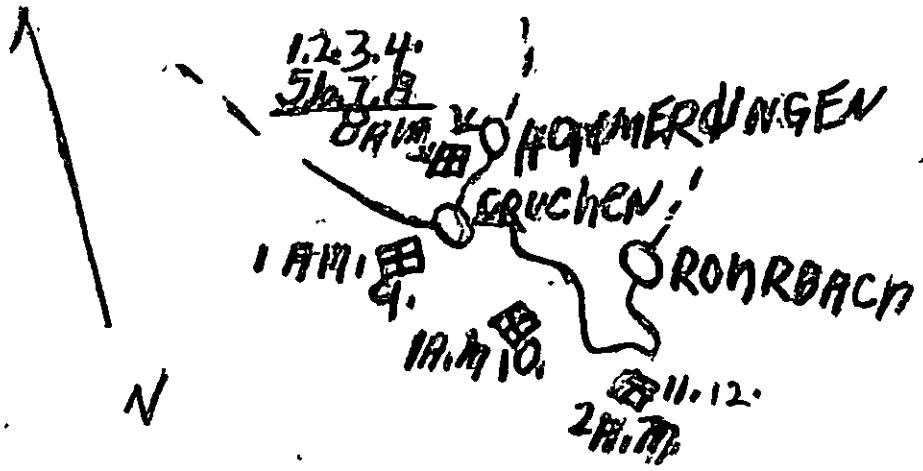 1.2.3.4.
5.6.7.8
8 A.M.
HAMMERDINGEN
GRUCHEN
1 A.M.
9.
ROHRBACH
1 A.M.
10.
11.12.
2 A.M.
N